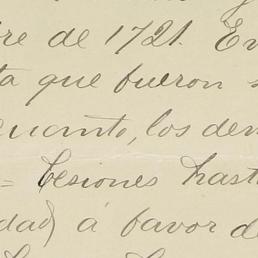 re de 1721. En
ta que fueron
cuanto, los dem
= Cesiones hast
dad) á favor de